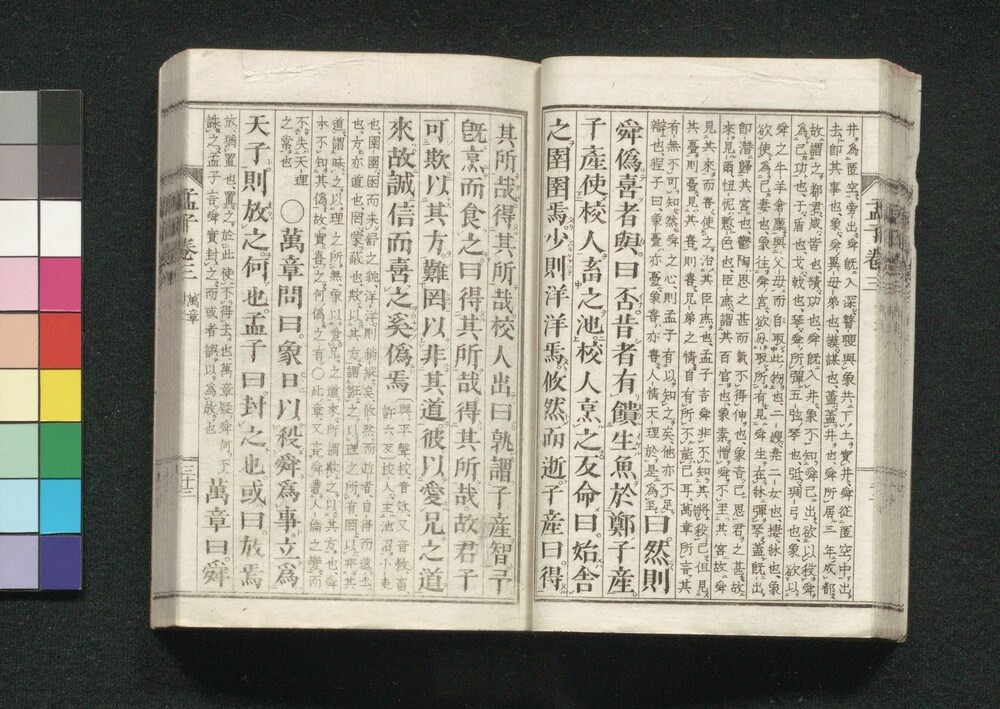 孟子卷三
井爲匿空旁出舜既入深瞽瞍與象共下土實井舜從匿空中出
去卽其事也象舜異母弟也謨謀也蓋蓋井也舜所居三年成都
故謂之都君咸皆也績功也舜既入井象不知舜已出欲以殺舜
爲己功也干盾也戈戟也琴舜所彈五弦琴也弤琱弓也象欲以
舜之牛羊倉廩與父母而自取此物也二嫂堯二女也棲牀也象
欲使爲己妻也象往舜宮欲分取所有見舜生在牀彈琴蓋既出
卽潛歸其宮也鬱陶思之甚而氣不得伸也象言己思君之甚故
來見爾忸怩慙色也臣庶謂其百官也象素憎舜不至其宮故舜
見其來而喜使之治其臣庶也孟子言舜非不知其將殺己但見
其憂則憂見其喜則喜兄弟之情自有所不能已耳萬章所言其
有無不可知然舜之心則孟子有以知之矣他亦不足
辯也程子曰象憂亦憂象喜亦喜人情天理於是爲至
曰然則
舜僞喜者與曰否昔者有饋生魚於鄭子產
子產使校人畜之池校人烹之反命曰始舍
之圉圉焉少則洋洋焉攸然而逝子產曰得
其所哉得其所哉校人出曰孰謂子產智予
既烹而食之曰得其所哉得其所哉故君子
可欺以其方難罔以非其道彼以愛兄之道
來故誠信而喜之奚僞焉
與平聲校音效又音教畜
許六反校人主池沼小吏
也圉圉困而未舒之貌洋洋則稍縱矣攸然而逝者自得而遠去
也方亦道也罔蒙蔽也欺以其方謂誑之以理之所有罔以非其
道謂昧之以理之所無象以愛兄之道來所謂欺之以其方也舜
本不知其僞故實喜之何僞之有○此章又言舜遭人倫之變而
不失天理
之常也
○萬章問曰象日以殺舜爲事立爲
天子則放之何也孟子曰封之也或曰放焉
放猶置也置之於此使不得去也萬章疑舜何不
誅之孟子言舜實封之而或者誤以爲放也
萬章曰舜
孟子卷三 萬章
三十三